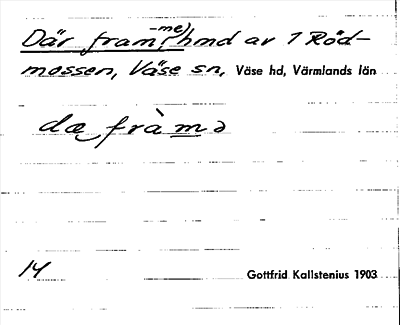 Där fram(-me) hmd av 1 Röd-
mossen, Väse sn, Väse hd, Värmlands län
dæ fràmə
14
Gottfrid Kallstenius 1903